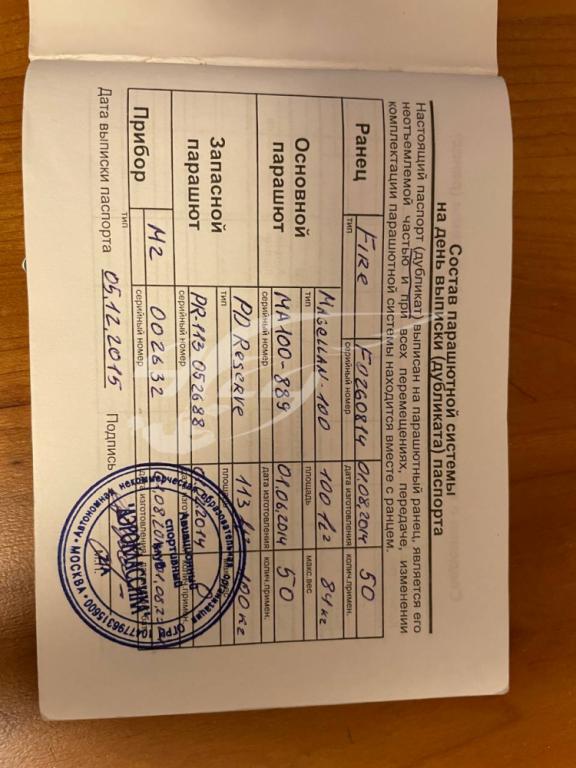 Состав парашютной системы
на день выписки (дубликата) паспорта
Настоящий паспорт (дубликат) выписан на парашютный ранец, является его
неотъемлемой частью и при всех перемещениях, передаче, изменении
комплектации парашютной системы находится вместе с ранцем.
Ранец FIRE F0260814 01.08.2014 50
тип серийный номер дата изготовления колич.примен.
Основной парашют MAGELLAN-100 100 84 кг
тип площадь макс.вес
MA100-889 01.06.2014 50
серийный номер дата изготовления колич.примен.
Запасной парашют PD Reserve 113 100 кг
тип
PR113-052688 2014
серийный номер колич.примен.
Прибор M2 002632
тип серийный номер
Дата выписки паспорта 05.12.2015 Подпись
Автономная некоммерческая образовательная организация
спортивный
МОСКВА